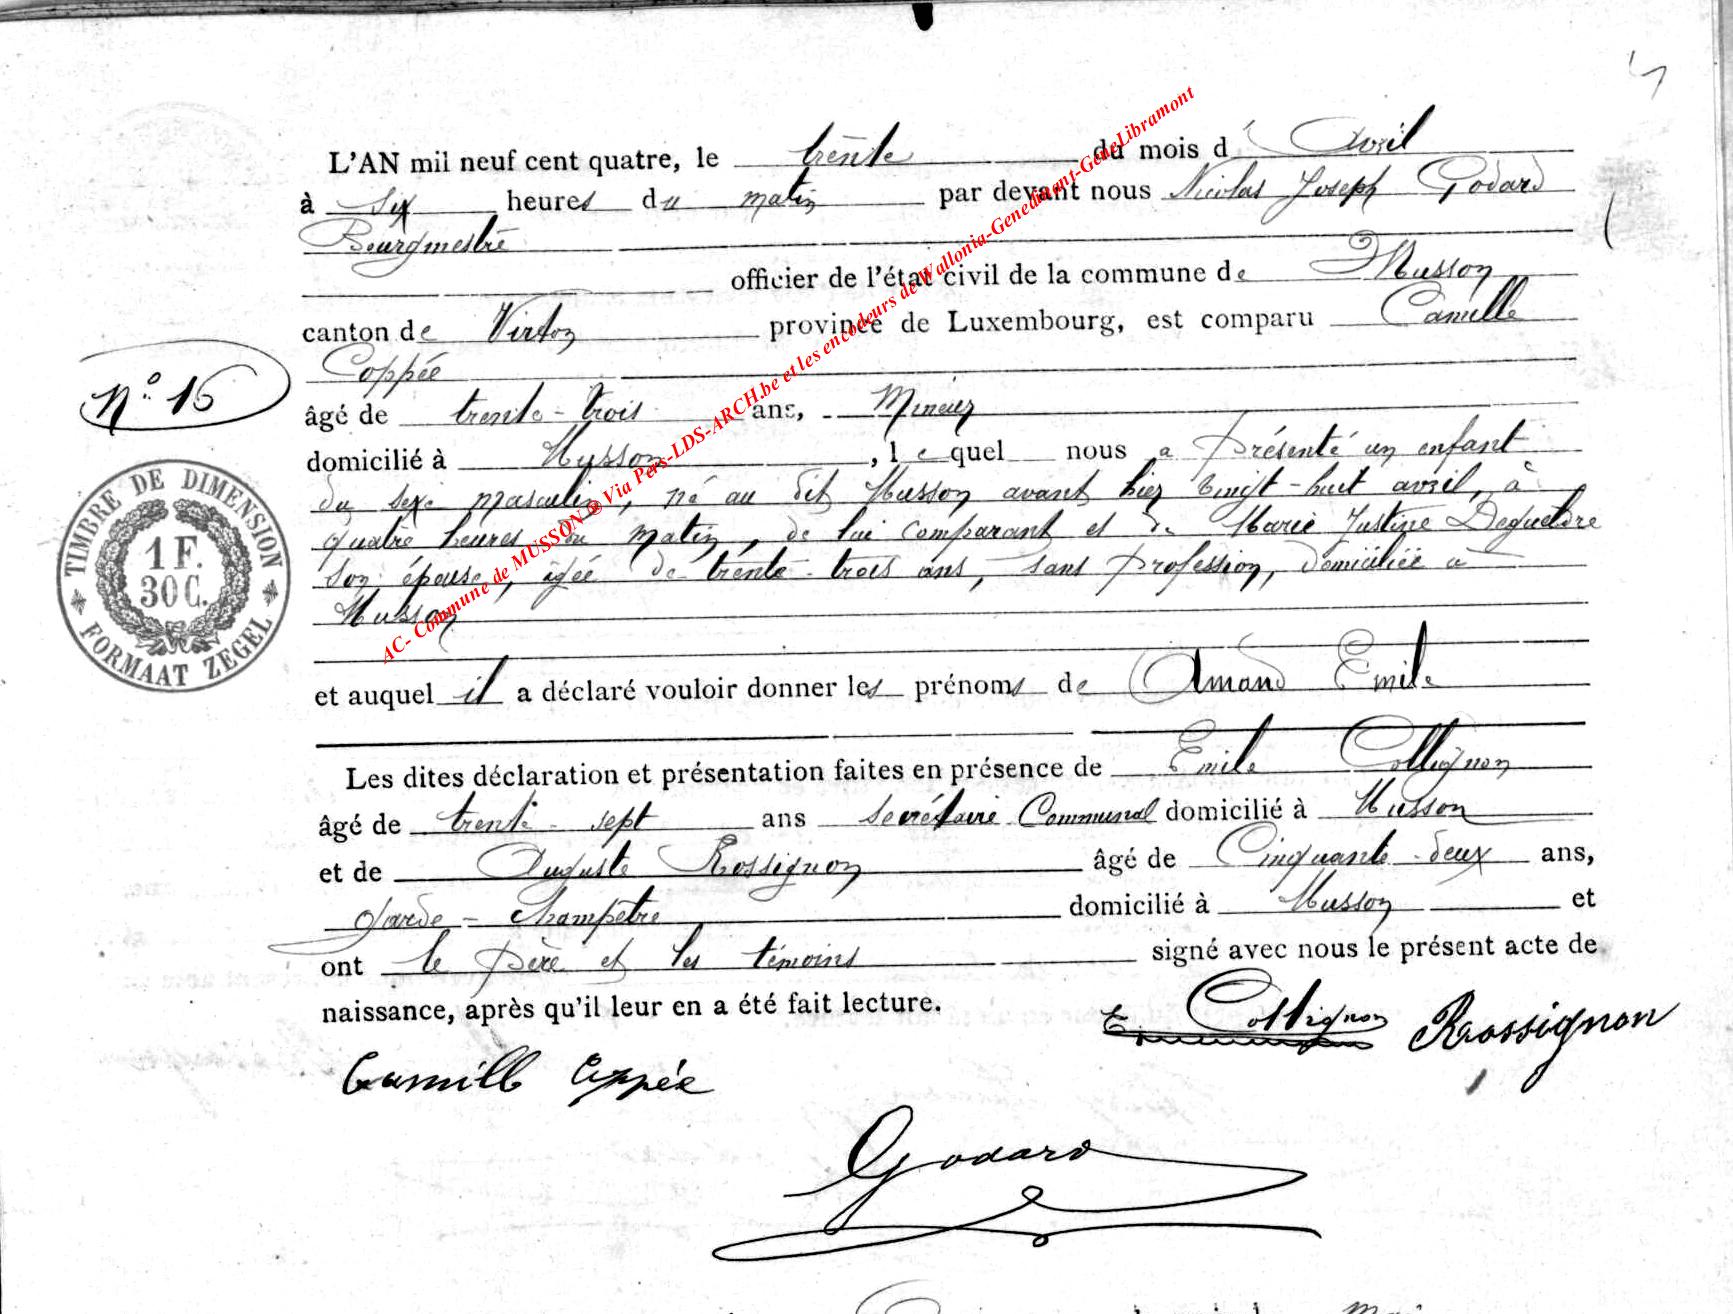 L'AN mil neuf cent quatre, le trente du mois d'Avril
à six heures du matin par devant nous Nicolas Joseph Godard
Bourgmestre
officier de l'état civil de la commune de Musson
canton de Virton province de Luxembourg, est comparu Camille
Coppée
âgé de trente-trois ans, Mineur
domicilié à Musson, lequel nous a présenté un enfant
du sexe masculin, né au dit Musson avant hier vingt-huit avril, à
quatre heures du matin, de lui comparant et de Marie Justine Degueldre
son épouse, âgée de trente-trois ans, sans profession, domiciliée à
Musson
et auquel il a déclaré vouloir donner les prénoms de Amand Emile
Les dites déclaration et présentation faites en présence de Emile Collignon
âgé de trente-sept ans secrétaire Communal domicilié à Musson
et de Auguste Rossignon âgé de Cinquante-deux ans,
garde-champêtre domicilié à Musson et
ont le père et les témoins signé avec nous le présent acte de
naissance, après qu'il leur en a été fait lecture.
E. Collignon Rossignon
Camille Coppée
Godard
N° 16
TIMBRE DE DIMENSION
1 F.
30 C.
FORMAAT ZEGEL
AC- Commune de MUSSON @ Via Pers-LDS-ARCH.be et les encodeurs de Wallonia-Genedinant-GeneLibramont